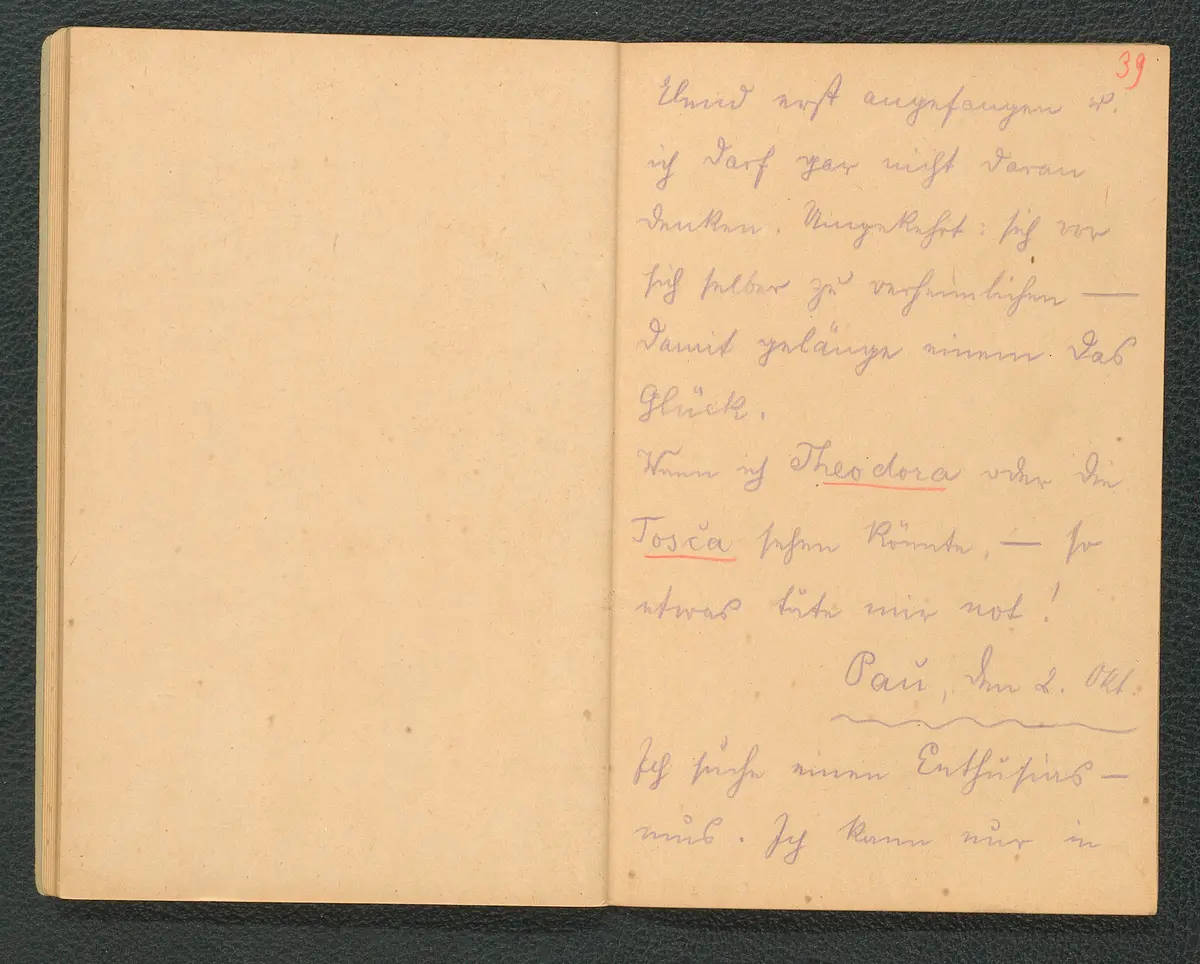 39
Elend erst angefangen u.
ich darf gar nicht daran
denken. Umgekehrt: sich vor
sich selber zu verheimlichen —
damit gelänge einem das
Glück.
Wenn ich Theodora oder die
Tosca sehen könnte, — so
etwas täte mir not!
Pau, den 2. Okt.
Ich suche einen Enthusias-
mus. Ich kann nur in